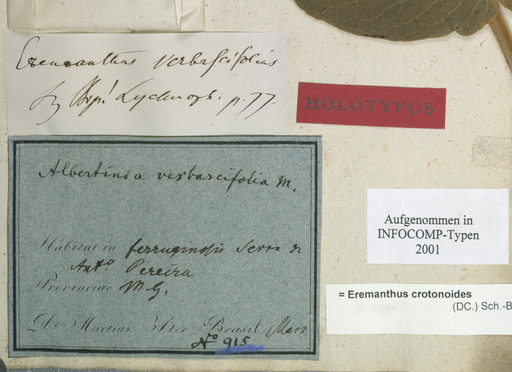 Eremanthus verbascifolius
Lychnoph. p. 77.
HOLOTYPUS
Albertinia verbascifolia M.
Habitat in ferruginosis Serra de
Ant.º Pereira
Provinciae M. G.
Dr. Martius Iter Brasil Mart
Nº 915
Aufgenommen in
INFOCOMP-Typen
2001
= Eremanthus crotonoides
(DC.) Sch.-B